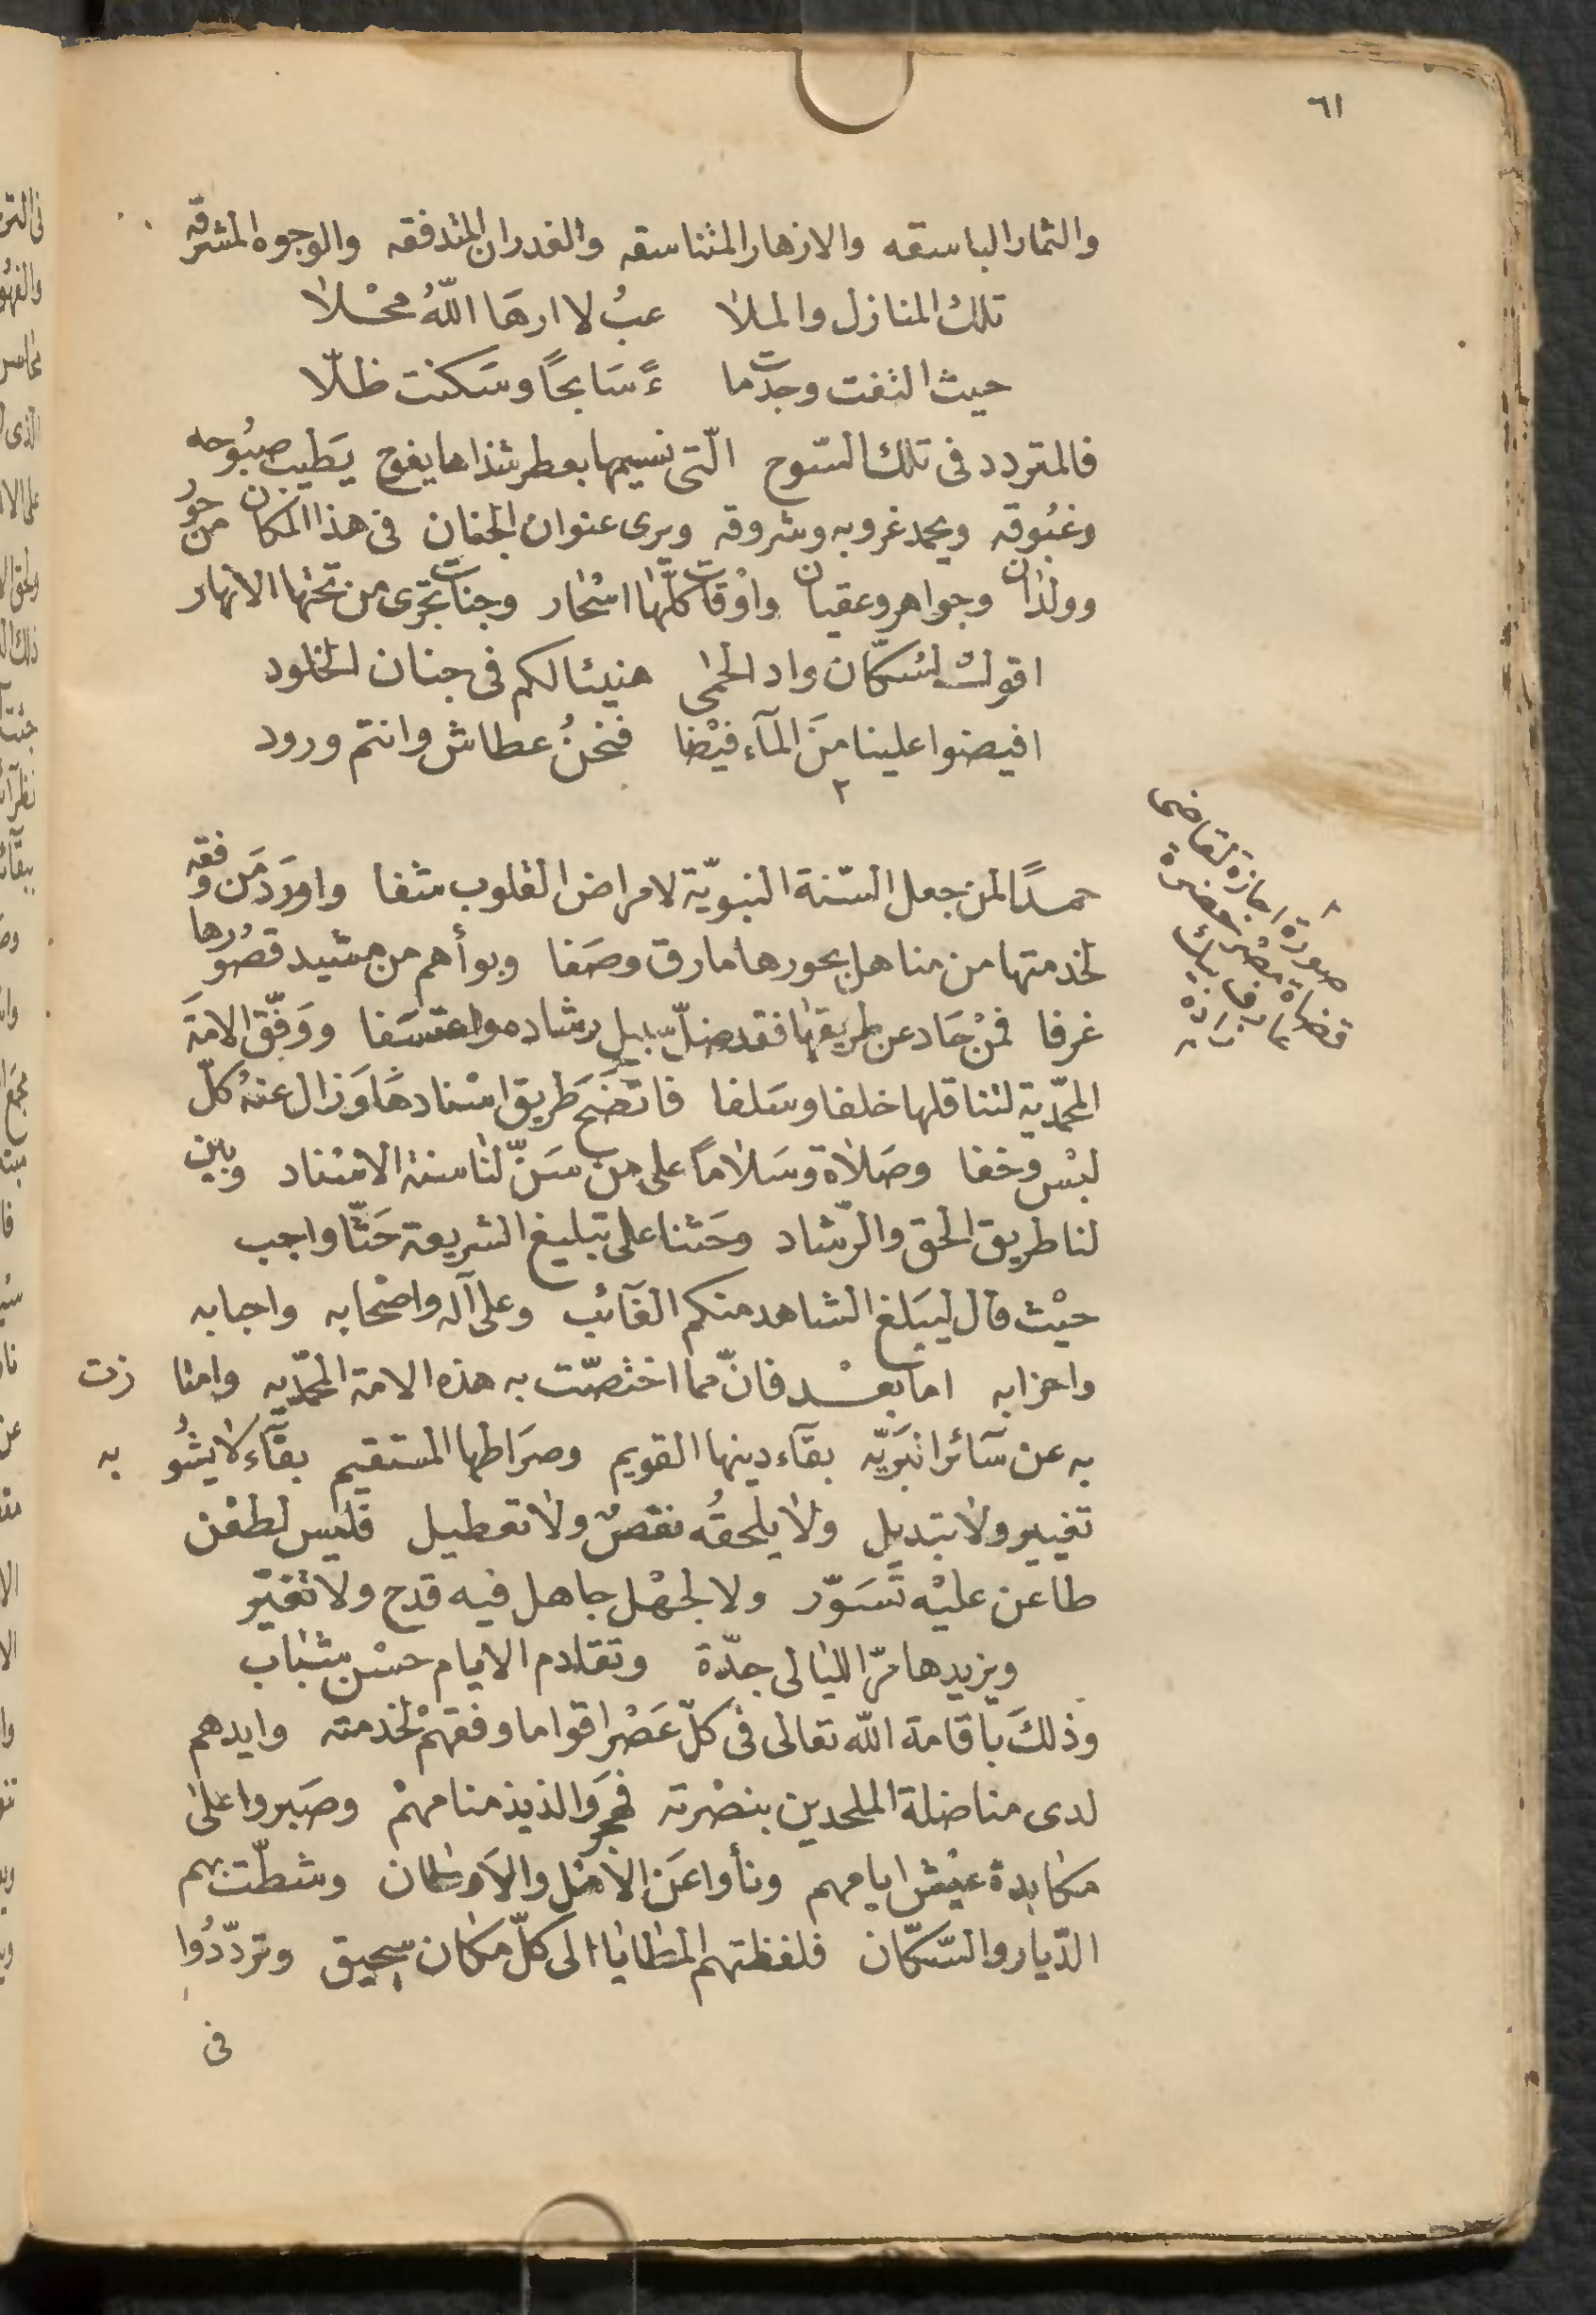 ٦١
والثمار الباسقه والازهار المتناسقه والغدران المتدفقه والوجوه المشرقه
تلك المنازل والملا عبُ لا ارهَا اللّهُ محْلا
حيث التفت وجدّت ما ءً سَابحاً وسَكنت ظلّا
فالمتردد فى تلك السّوح الّتى نسيمها بعطر شذاها يفوح يَطيب صبُوحه
وغبُوقه ويحمد غروبه وشروقه ويرى عنوان الجنان فى هذا المكان من حور
وولدان وجواهر وعقيان واوْقات كلّها اسْحار وجنات تجرى من تحتها الانهار
اقول لسُكّان واد الحمى هنيئا لكم فى جنان الخلود
افيضوا علينا منَ المآء فيْضا فنحنُ عطاش وانتم ورود
٢
حمدًا لمن جعل السّنة النبويّة لامراض القلوب شفا واورَد مَن وفقه
لخدمتها من مناهل بحورها ما رق وصَفا وبوأهم من مشيد قصُورها
غرفا فمنْ حَاد عن طريقها فقد ضلّ سبيل رشاده واعتسَفا ووَفّق الامَةَ
المحمّدية لتناقلها خلفا وسَلفا فاتّضَحَ طريق اسْنادهَا وَزال عنهُ كلّ
لبْس وخفا وصَلاة وسَلامًا على من سَنّ لنا سنة الاسْناد وبين
لنا طريق الحق والرّشاد وحَثنا على تبليغ الشريعة حَثّا واجب
حيْث قال ليبَلغ الشاهد منكم الغآئب وعلى آله واصْحابه واحبابه
واحزابه اما بعْد فانّ مما اختصّت به هذه الامة المحمّديه وامتازت
به عن سَآئر البَريّه بقآء دينها القويم وصرَاطها المستقيم بقآء لا يشُوبه
تغيير ولا تبديل ولا يلحقُه نقصٌ ولا تعطيل فليس لطعْن
طاعن عليْه تَسَوّر ولا لجهْل جاهل فيه قدح ولا تغيّر
ويزيدها مرّ الليالى جدّة وتقادم الايام حسْن شباب
وذلكَ باقامة اللّه تعالى فى كلّ عَصْر اقواما وفقهمْ لخدمته وايدهم
لدى مناضلة الملحدين بنصْرته فهجروَا لذيذ منامهمْ وصَبروا على
مكابدة عيْش ايامهم ونأوا عَن الأهْل والاَوطان وشطّت بهم
الدّيار والسّكّان فلفظتهم المطايا الى كلّ مكان سحيق وتردّدُوا
فى
صورة اجازة لقاضى
قضاة مصْر حضرة
عارف بيك
زاده